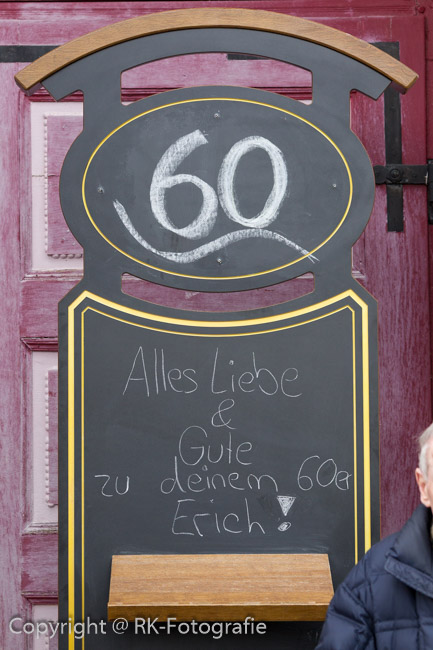 60
Alles Liebe
&
Gute
zu deinem 60er
Erich!
Copyright @ RK-Fotografie